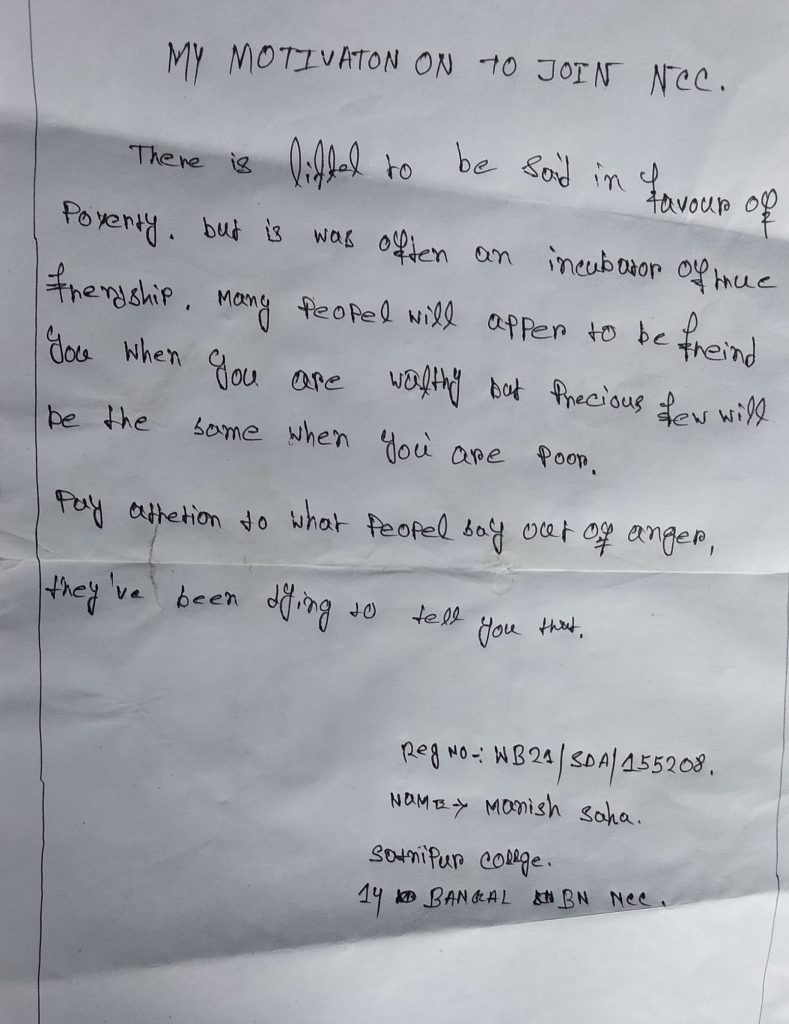 MY MOTIVATON ON TO JOIN NCC.
There is littel to be said in favour of
Poverty. but is was often an incubator of true
frendship. Many Peopel will apper to be freind
you when you are walthy but Precious few will
be the same when you are poor.
Pay attetion to what Peopel say out of anger,
they've been dying to tell you that.
Reg NO-: WB21/SDA/155208.
NAME→ Manish Saha.
Collge.
14 BANGAL BN NCC.